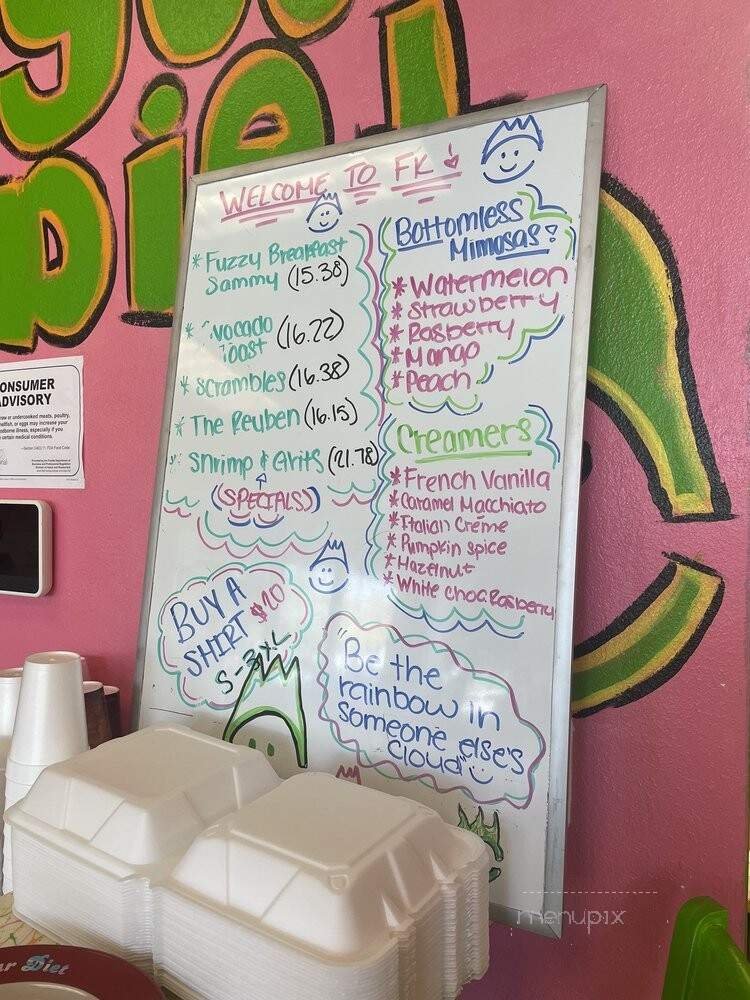 WELCOME TO FK!
* Fuzzy Breakfast
Sammy (15.38)
* Avocado
Toast (16.22)
* Scrambles (16.38)
* The Reuben (16.15)
* Shrimp & Grits (21.78)
(SPECIALS)
Bottomless
Mimosas?
* Watermelon
* Strawberry
* Rasberry
* Mango
* Peach
Creamers
* French Vanilla
* Caramel Macchiato
* Italian Crème
* Pumpkin spice
* Hazelnut
* White Choc Rasberry
BUY A
SHIRT $20
S-3XL
Be the
rainbow in
someone else's
cloud"
ONSUMER
ADVISORY
ar Diet
menupix